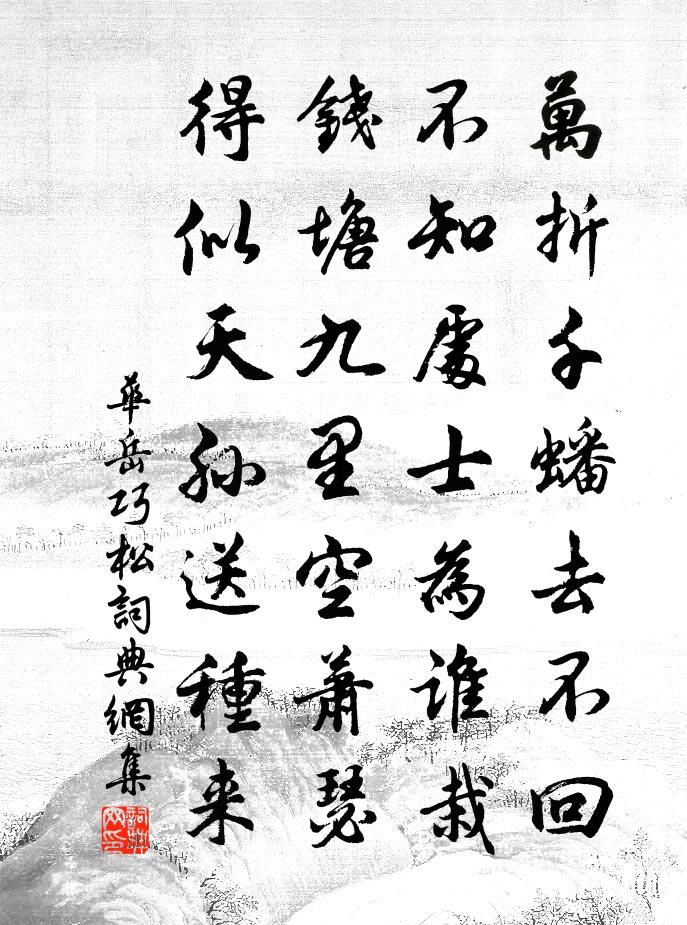 萬折千蟠去不回
不知處士為誰栽
錢塘九里空蕭瑟
得似天孫送種来
華岳巧松詞典網集
詞典网印